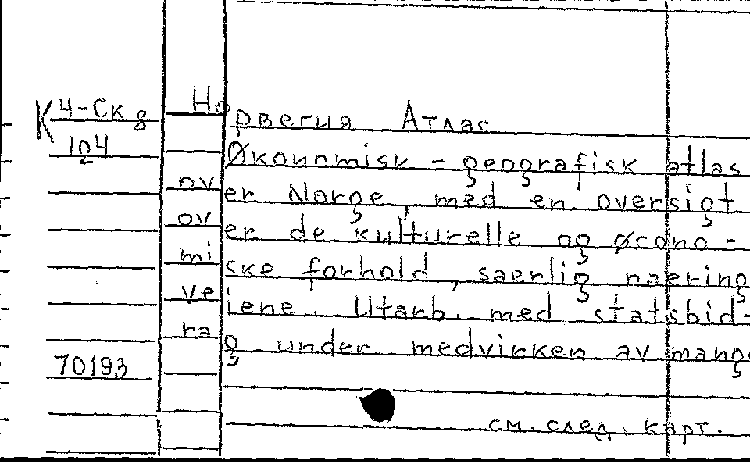 К 4-Ск 8
104
Норвегия Атлас
Økonomisk - geografisk atlas
over Norge, med en oversigt
over de kulturelle og øcono-
miske forhold, saerlig naering
veiene. Utarb. med statsbid-
rag under medvirken av mang
70193
см. след. карт.